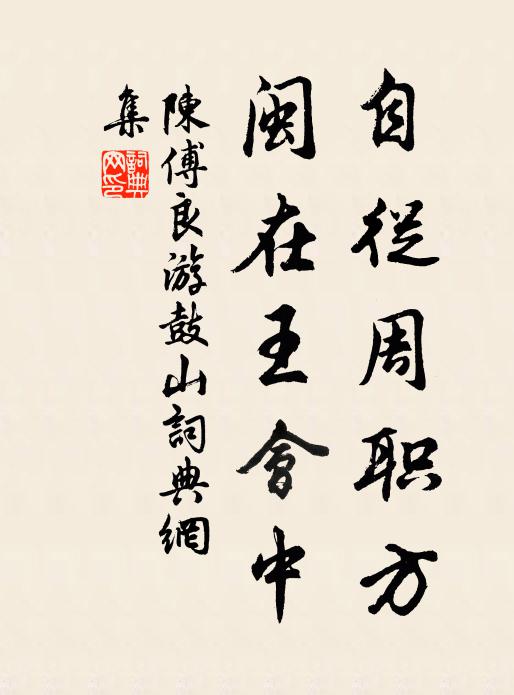 自從周职方
閩在王會中
陳傅良游鼓山詞典網
集
詞典
网印